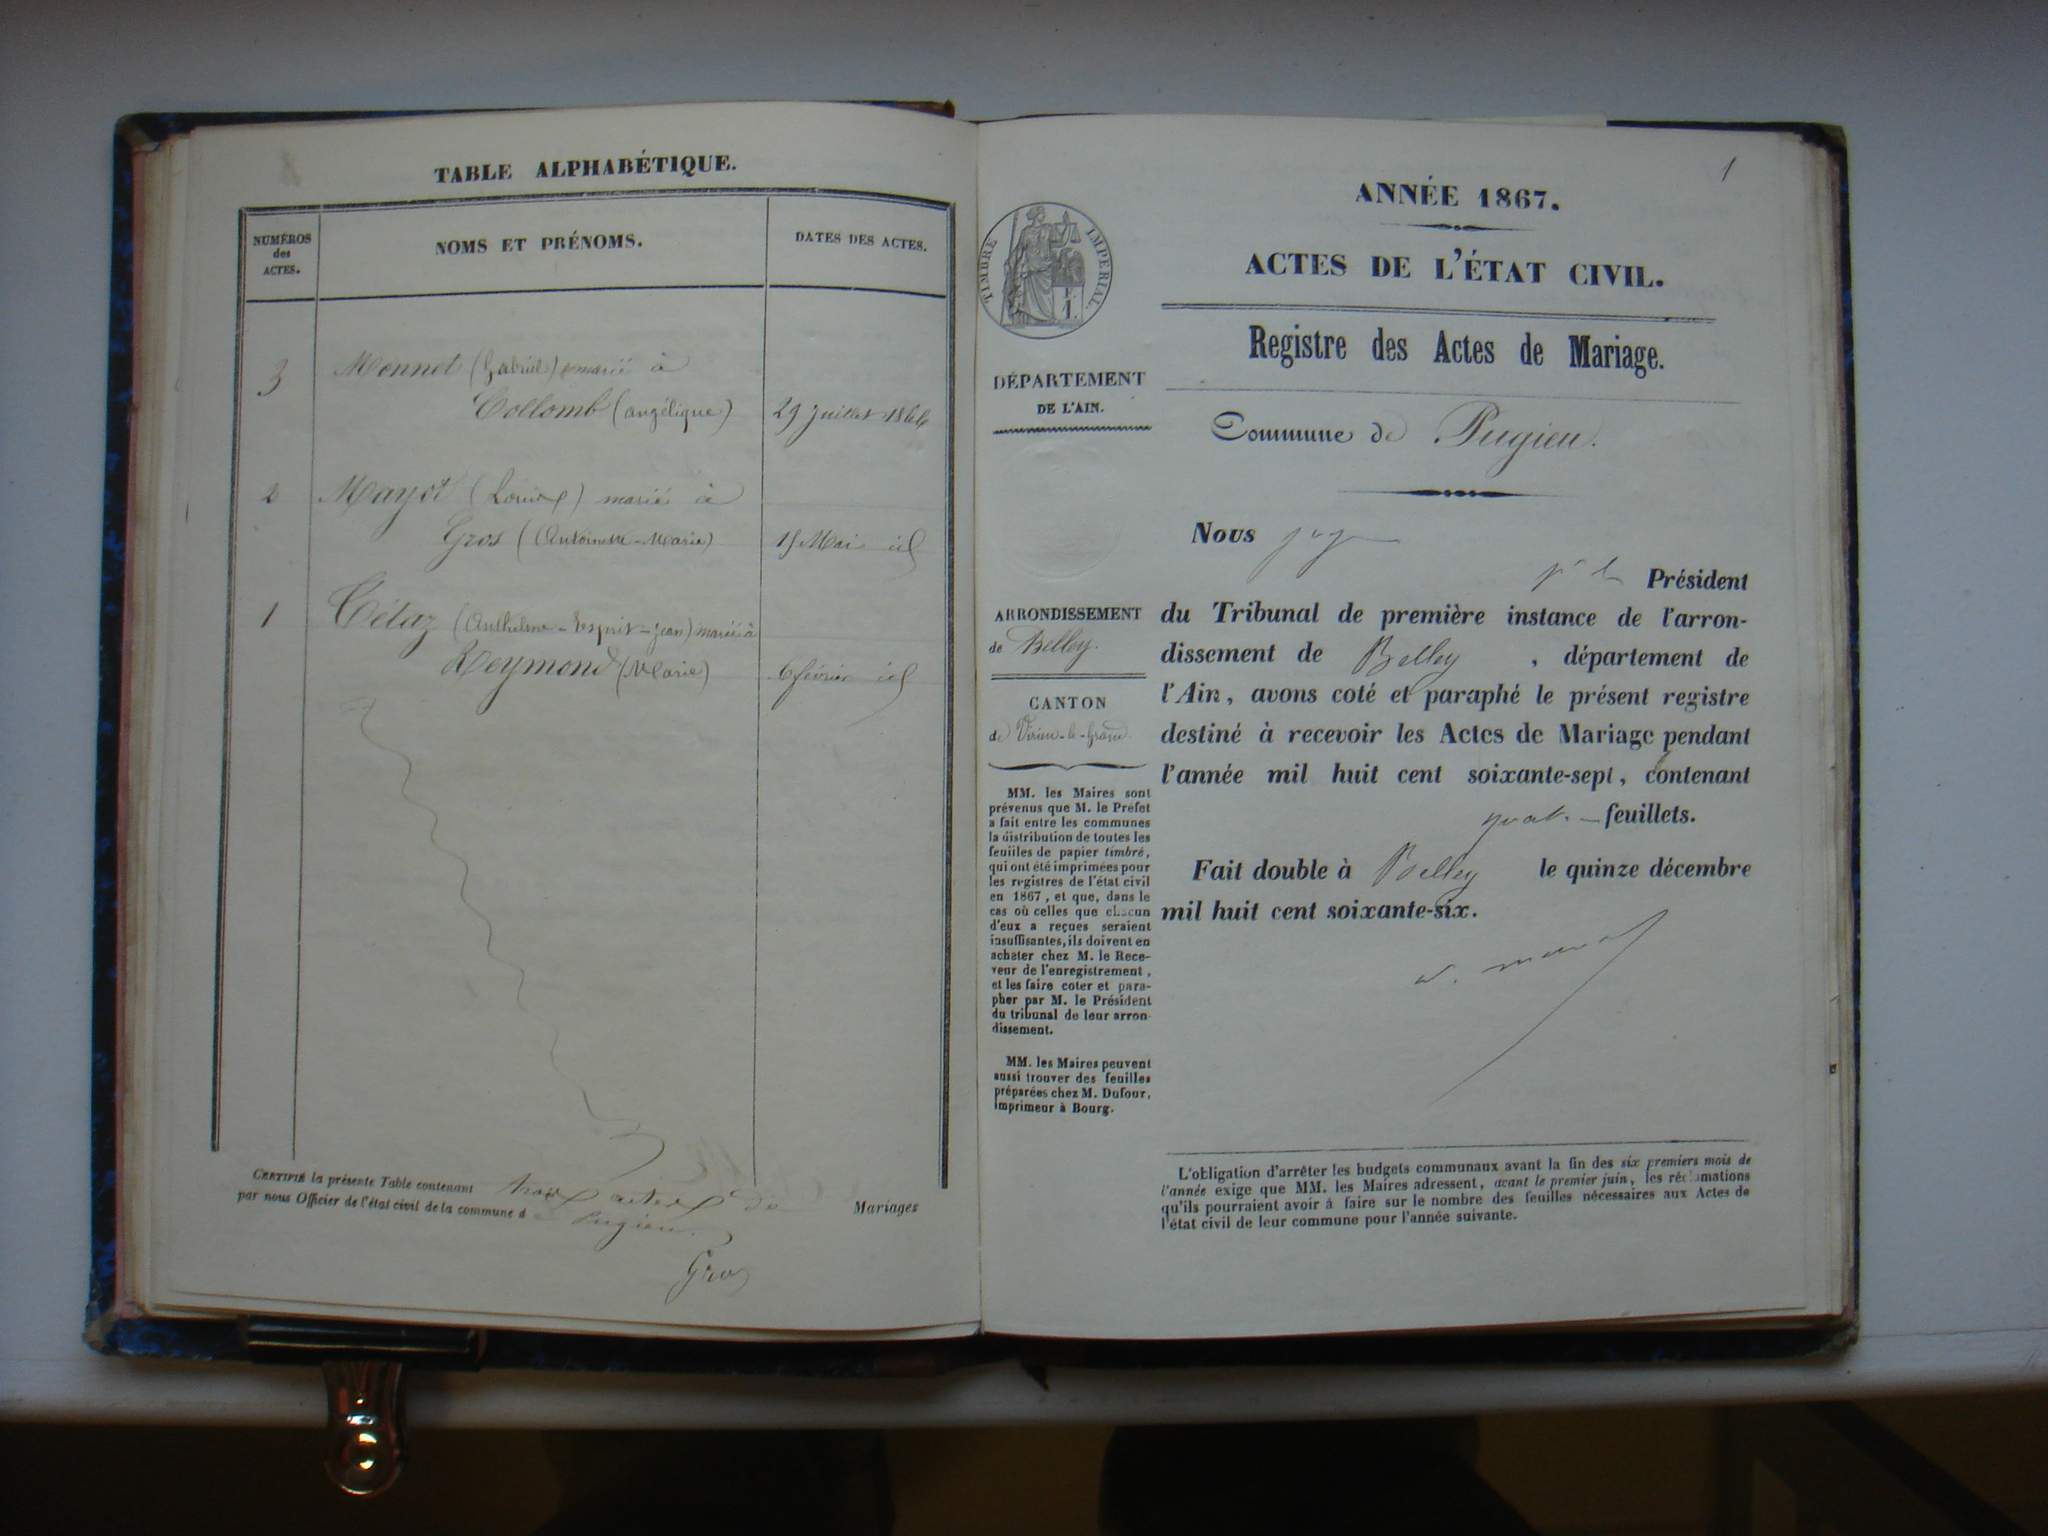 TABLE ALPHABÉTIQUE.
NUMÉROS
des
ACTES.
NOMS ET PRÉNOMS.
DATES DES ACTES.
3 Monnet (Gabriel) marié à
Collomb (angélique) 29 juillet 1866
2 Mayot (Louis) marié à
Gros (Antoinette-Marie) 15 Mai id
1 Tétaz (Anthelme-Esprit-Jean) marié à
Reymond (Marie) 6 février id
CERTIFIÉ la présente Table contenant trois actes de Mariages
par nous Officier de l'état civil de la commune de Pugieu.
Gros
1
ANNÉE 1867.
ACTES DE L'ÉTAT CIVIL.
Registre des Actes de Mariage.
Commune de Pugieu.
TIMBRE IMPÉRIAL.
DÉPARTEMENT
DE L'AIN.
ARRONDISSEMENT
de Belley.
CANTON
de Virieu-le-Grand
MM. les Maires sont
prévenus que M. le Préfet
a fait entre les communes
la distribution de toutes les
feuilles de papier timbré,
qui ont été imprimées pour
les registres de l'état civil
en 1867, et que, dans le
cas où celles que chacun
d'eux a reçues seraient
insuffisantes, ils doivent en
acheter chez M. le Rece-
veur de l'enregistrement,
et les faire coter et para-
pher par M. le Président
du tribunal de leur arron-
dissement.
MM. les Maires peuvent
aussi trouver des feuilles
préparées chez M. Dufour,
imprimeur à Bourg.
Nous juge
pr le Président
du Tribunal de première instance de l'arron-
dissement de Belley, département de
l'Ain, avons coté et paraphé le présent registre
destiné à recevoir les Actes de Mariage pendant
l'année mil huit cent soixante-sept, contenant
feuillets.
Fait double à Belley le quinze décembre
mil huit cent soixante-six.
L'obligation d'arrêter les budgets communaux avant la fin des six premiers mois de
l'année exige que MM. les Maires adressent, avant le premier juin, les réclamations
qu'ils pourraient avoir à faire sur le nombre des feuilles nécessaires aux Actes de
l'état civil de leur commune pour l'année suivante.